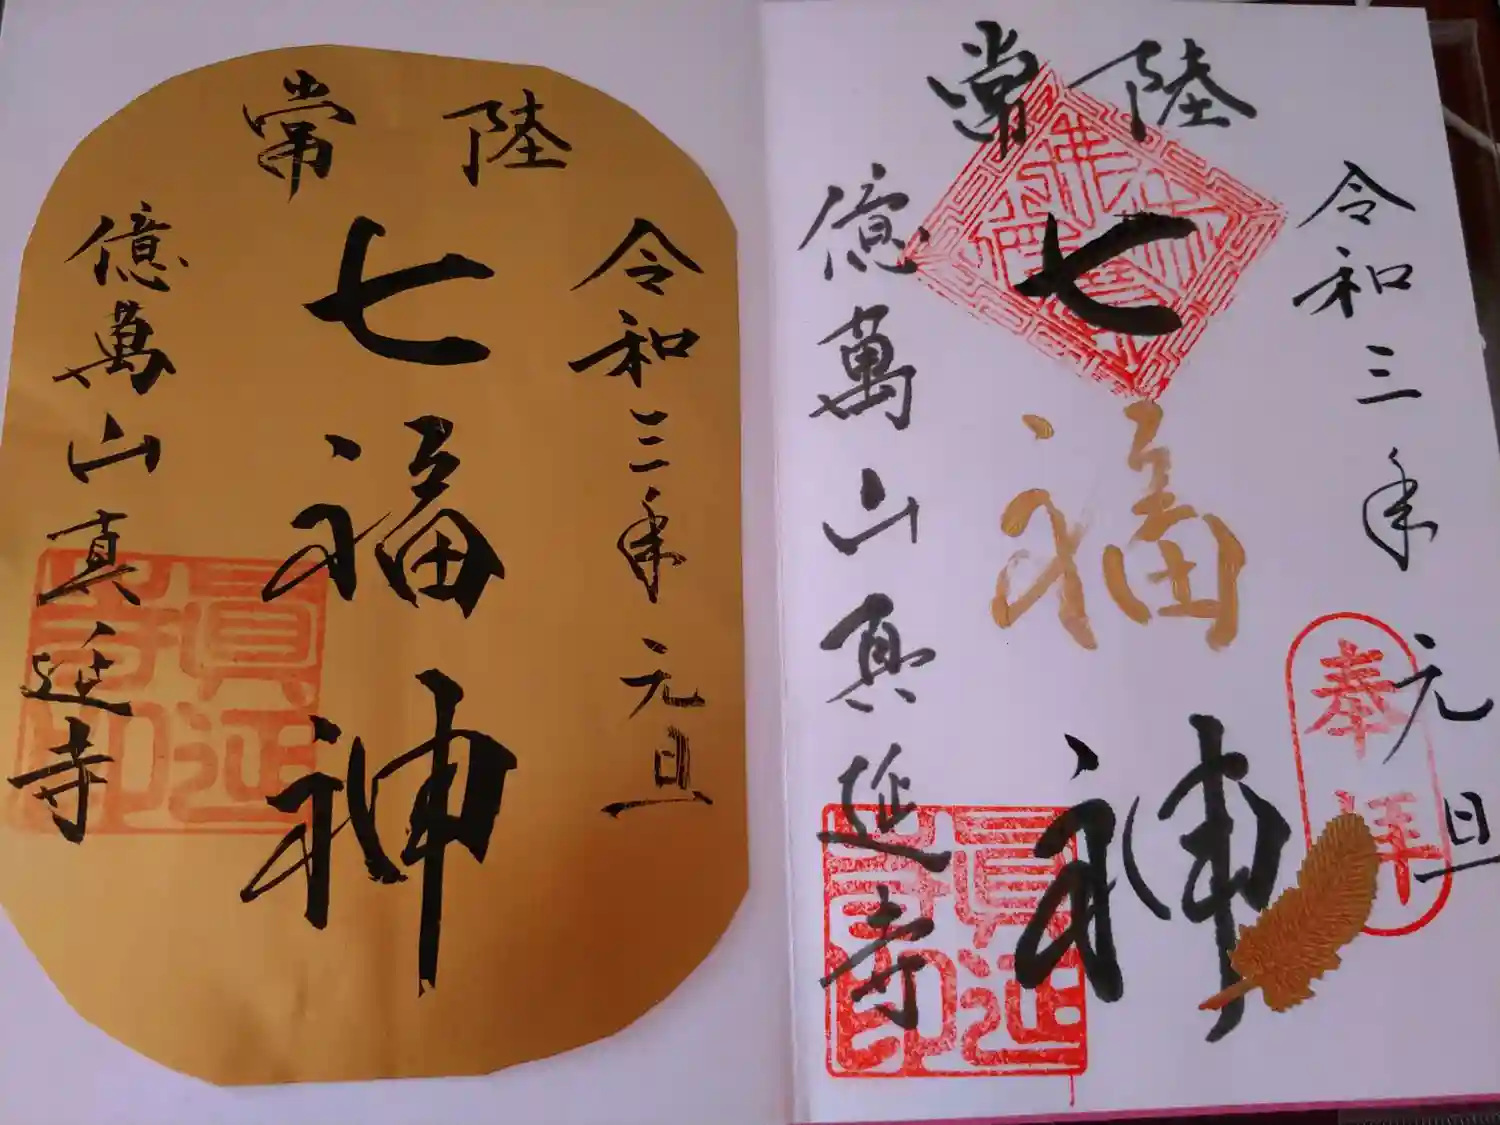 常陸
令和三年元旦
七福神
億萬山真延寺
眞延寺印
常陸
令和三年元旦
奉拝
七福神
億萬山真延寺
眞延寺印